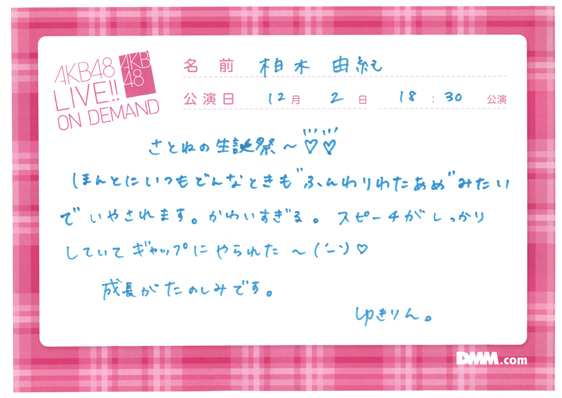 AKB48
LIVE!!
ON DEMAND
AKB
48
名前 柏木 由紀
公演日 12月 2日 18:30 公演
さとねの生誕祭〜♡♡
ほんとにいつもどんなときも"ふんわりわたあめ"みたい
で いやされます。かわいすぎる。スピーチがしっかり
していてギャップにやられた〜(´ー`)♡
成長がたのしみです。
ゆきりん。
DMM.com